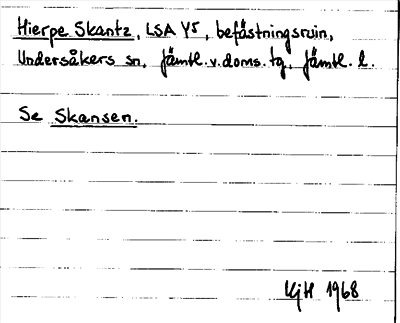 Hierpe Skantz, LSA Y5, befästningsruin,
Undersåkers sn, Jämtl. v. doms. tg, Jämtl. l.
Se Skansen.
KjH 1968